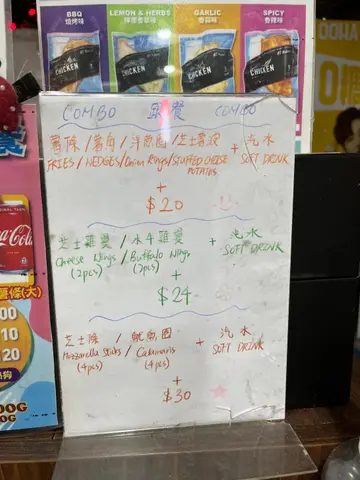 BBQ
燒烤味
LEMON & HERBS
檸檬香草味
GARLIC
香蒜味
SPICY
香辣味
CHICKEN
CHICKEN
CHICKEN
CHICKEN
COMBO 跟餐 COMBO
薯條/薯角/洋蔥圈/芝士薯波 + 汽水
FRIES/WEDGES/Onion Rings/STUFFED CHEESE POTATOES SOFT DRINK
+
$20
芝士雞翼/水牛雞翼 + 汽水
Cheese Wings/Buffalo Wings SOFT DRINK
(2pcs) (2pcs)
+
$24
芝士條/魷魚圈 + 汽水
Mozzarella Sticks/Calamaris SOFT DRINK
(4pcs) (4pcs)
+
$30
Coca
薯條(大)
00
10
20